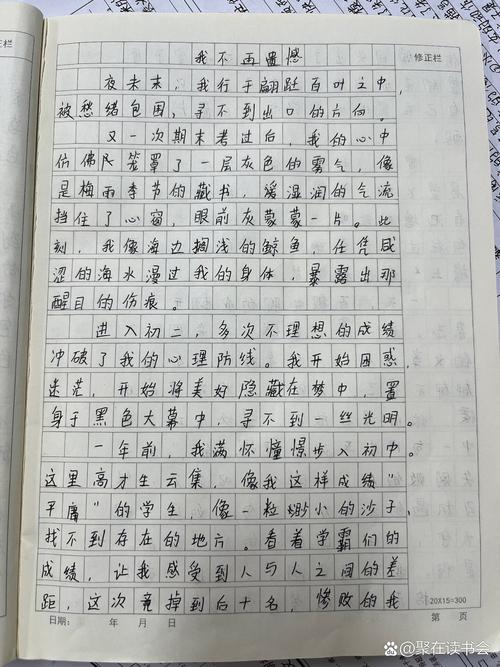 我不再遗憾
修正栏
夜未来，我行于翩跹百叶之中，
被愁绪包围，寻不到出口的方向。
又一次期末考过后，我的心中
仿佛笼罩了一层灰色的雾气，像
是梅雨季节的藏书，缓湿润的气流
挡住了心窗，眼前灰蒙蒙一片。此
刻，我像海边搁浅的鲸鱼，任凭咸
涩的海水漫过我的身体，暴露出那
醒目的伤痕。
进入初二，多次不理想的成绩
冲破了我的心理防线。我开始困惑，
迷茫，开始将美好隐藏在梦中，置
身于黑色大幕中，寻不到一丝光明。
一年前，我满怀憧憬步入初中。
这里高才生云集，像我这样成绩“
平庸”的学生，像一粒渺小的沙子，
找不到存在的地方。看着学霸们的
成绩，让我感受到人与人之间的差
距，这次竟掉到后十名，惨败的我
20X15=300
日期： 年 月 日 第 页
百家号/聚在读书会